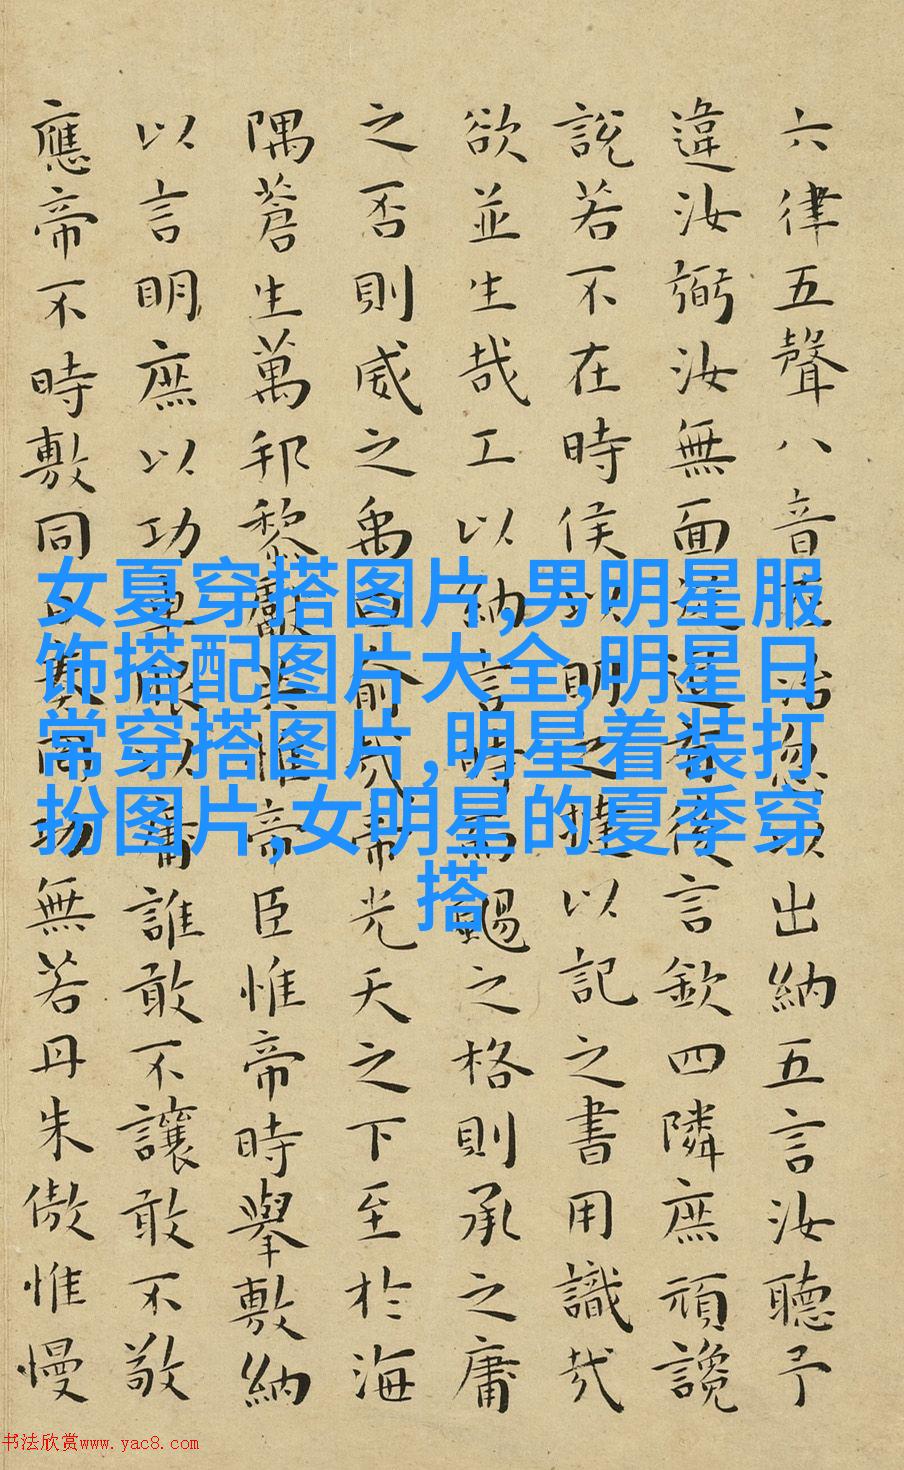 六律五聲八音在治忽以出納五言汝聽予
違汝弼汝無面從退有後言欽四隣庶頑讒
說若不在時侯以明之撻以記之書用識哉
欲並生哉工以納言時而颺之格則承之庸
之否則威之禹曰俞哉帝光天之下至於海
隅蒼生萬邦黎獻共惟帝臣惟帝時舉敷納
以言明庶以功車服以庸誰敢不讓敢不敬
應帝不時敷同日奏罔功無若丹朱傲惟慢
女夏穿搭图片,男明星服
饰搭配图片大全,明星日
常穿搭图片,明星着装打
扮图片,女明星的夏季穿
搭
书法欣赏www.yac8.com